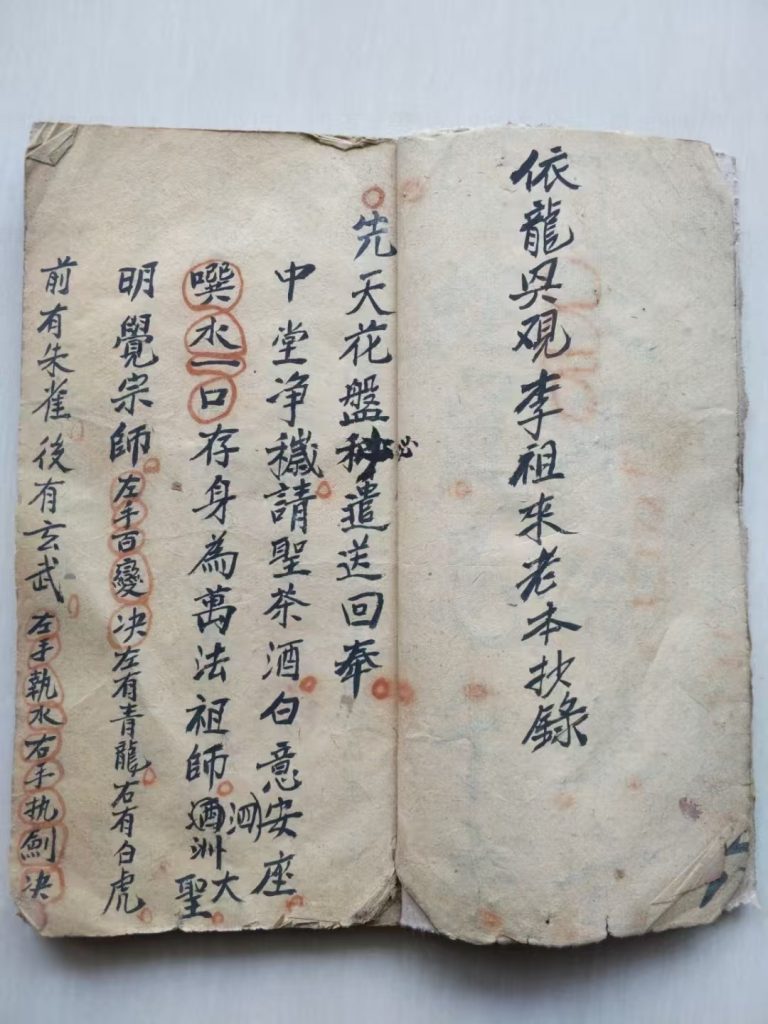 依龍吳觋李祖來老本抄錄
先天花盤秘遣送回奉
中堂净穢請聖茶酒白意安座
噀水一口存身為萬法祖師泗洲大聖
明覺宗師左手百變决左有青龍右有白虎
前有朱雀後有玄武左手執水右手执劍决